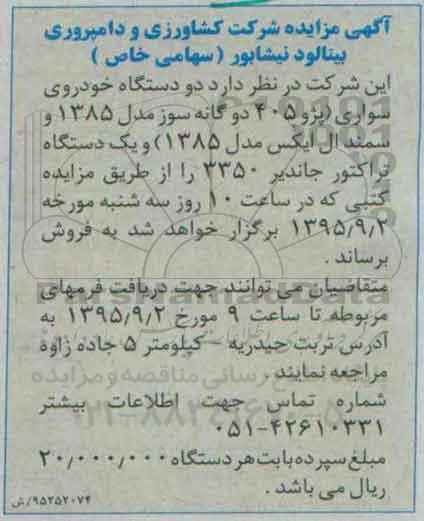 آگهی مزایده شرکت کشاورزی و دامپروری
بینالود نیشابور ( سهامی خاص )
این شرکت در نظر دارد دو دستگاه خودروی
سواری (پژو ۴۰۵ دوگانه سوز مدل ۱۳۸۵ و
سمند ال ایکس مدل ۱۳۸۵) و یک دستگاه
تراکتور جاندیر ۳۳۵۰ را از طریق مزایده
کتبی که در ساعت ۱۰ روز سه شنبه مورخه
۱۳۹۵/۹/۲ برگزار خواهد شد به فروش
برساند .
متقاضیان می توانند جهت دریافت فرمهای
مربوطه تا ساعت ۹ مورخ ۱۳۹۵/۹/۲ به
آدرس تربت حیدریه - کیلومتر ۵ جاده زاوه
مراجعه نمایند .
شماره تماس جهت اطلاعات بیشتر
۰۵۱-۴۲۶۱۰۳۳۱
مبلغ سپرده بابت هر دستگاه ۲۰/۰۰۰/۰۰۰
ریال می باشد .
۹۵۲۵۲۰۷۴/ش